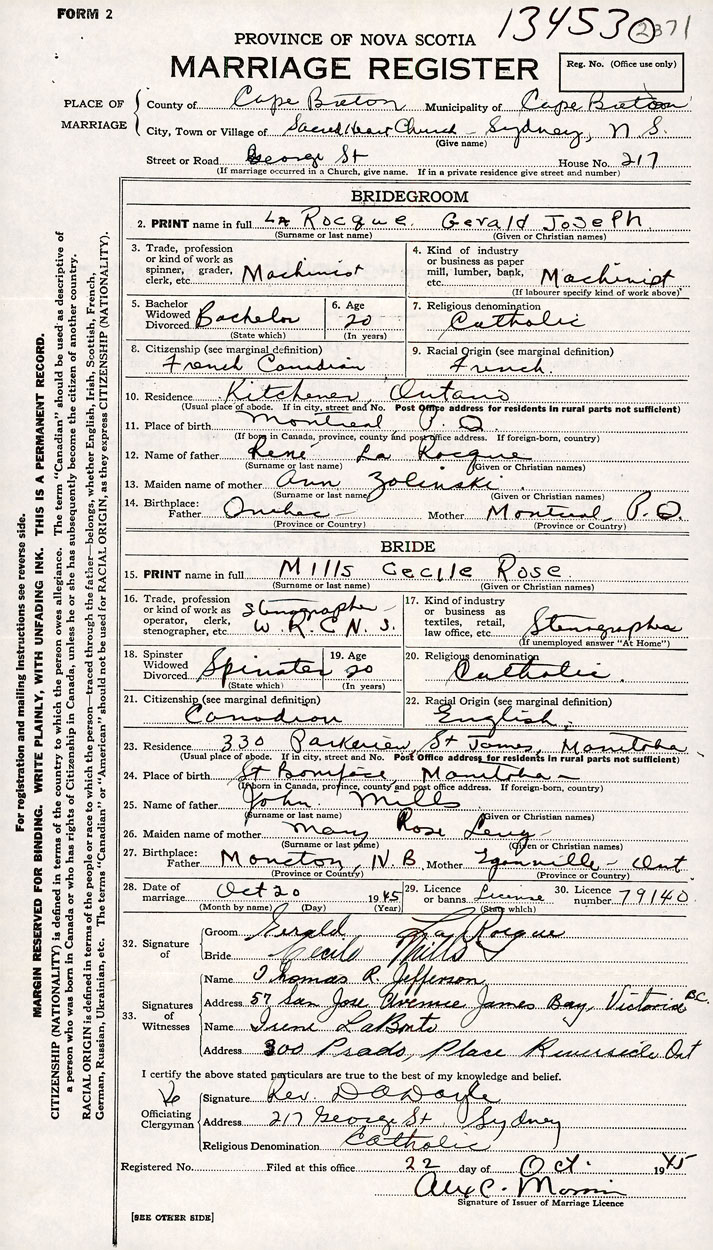 FORM 2
134530 2371
PROVINCE OF NOVA SCOTIA
MARRIAGE REGISTER
Reg. No. (Office use only)
PLACE OF MARRIAGE
County of Cape Breton Municipality of Cape Breton
City, Town or Village of Sacred Heart Church - Sydney, N.S.
(Give name)
Street or Road George St House No. 217
(If marriage occurred in a Church, give name. If in a private residence give street and number)
BRIDEGROOM
2. PRINT name in full La Rocque. Gerald Joseph.
(Surname or last name) (Given or Christian names)
3. Trade, profession or kind of work as spinner, grader, clerk, etc. Machinist
4. Kind of industry or business as paper mill, lumber, bank, etc. Machinist
(If labourer specify kind of work above)
5. Bachelor Widowed Divorced Bachelor
(State which)
6. Age 20
(In years)
7. Religious denomination Catholic
8. Citizenship (see marginal definition) French Canadian
9. Racial Origin (see marginal definition) French.
10. Residence Kitchener, Ontario
(Usual place of abode. If in city, street and No. Post Office address for residents in rural parts not sufficient)
11. Place of birth Montreal P.Q.
(If born in Canada, province, county and post office address. If foreign-born, country)
12. Name of father René La Rocque
(Surname or last name) (Given or Christian names)
13. Maiden name of mother Ann Zolinski
(Surname or last name) (Given or Christian names)
14. Birthplace: Father Quebec Mother Montreal, P.Q.
(Province or Country) (Province or Country)
BRIDE
15. PRINT name in full Mills Cecile Rose
(Surname or last name) (Given or Christian names)
16. Trade, profession or kind of work as operator, clerk, stenographer, etc. Stenographer - W.R.C.N.S.
17. Kind of industry or business as textiles, retail, law office, etc. Stenographer
(If unemployed answer "At Home")
18. Spinster Widowed Divorced Spinster
(State which)
19. Age 20
(In years)
20. Religious denomination Catholic.
21. Citizenship (see marginal definition) Canadian
22. Racial Origin (see marginal definition) English.
23. Residence 330 St James, Manitoba
(Usual place of abode. If in city, street and No. Post Office address for residents in rural parts not sufficient)
24. Place of birth St Boniface, Manitoba -
(If born in Canada, province, county and post office address. If foreign-born, country)
25. Name of father John Mills
(Surname or last name) (Given or Christian names)
26. Maiden name of mother Mary Rose
(Surname or last name) (Given or Christian names)
27. Birthplace: Father Moncton, N.B. Mother Eganville - Ont
(Province or Country) (Province or Country)
28. Date of marriage Oct 20 1945
(Month by name) (Day) (Year)
29. Licence or banns License
(State which)
30. Licence number 79140
32. Signature of
Groom Gerald La Rocque
Bride Cecile Mills
33. Signatures of Witnesses
Name Thomas R. Jefferson
Address 57 San Jose Avenue James Bay, Victoria B.C.
Name Irene LaBonte
Address 300 Prado, Place Riverside Ont
I certify the above stated particulars are to the best of my knowledge and belief.
Officiating Clergyman
Signature Rev. D A Doyle
Address 217 George St, Sydney
Religious Denomination Catholic
Registered No. Filed at this office 22 day of Oct. 1945
Alex C.
Signature of Issuer of Marriage Licence
[SEE OTHER SIDE]
For registration and mailing instructions see reverse side.
MARGIN RESERVED FOR BINDING. WRITE PLAINLY, WITH UNFADING INK. THIS IS A PERMANENT RECORD.
CITIZENSHIP (NATIONALITY) is defined in terms of the country to which the person owes allegiance. The term "Canadian" should be used as descriptive of
a person who was born in Canada or who has rights of Citizenship in Canada, unless he or she has subsequently become the citizen of another country.
RACIAL ORIGIN is defined in terms of the people or race to which the person—traced through the father—belongs, whether English, Irish, Scottish, French,
German, Russian, Ukrainian, etc. The terms "Canadian" or "American" should not be used for RACIAL ORIGIN, as they express CITIZENSHIP (NATIONALITY).